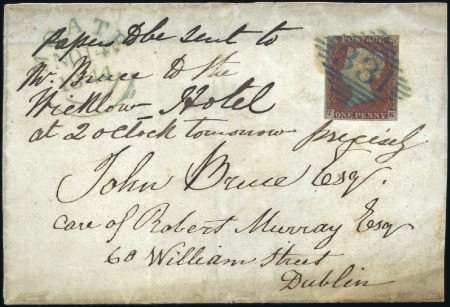 Papers to be sent to
Mr. Bruce to the
Wicklow Hotel
at 2 oClock tomorrow precisely
John Bruce Esq.
Care of Robert Murray Esq
60 William Street
Dublin
POSTAGE
ONE PENNY